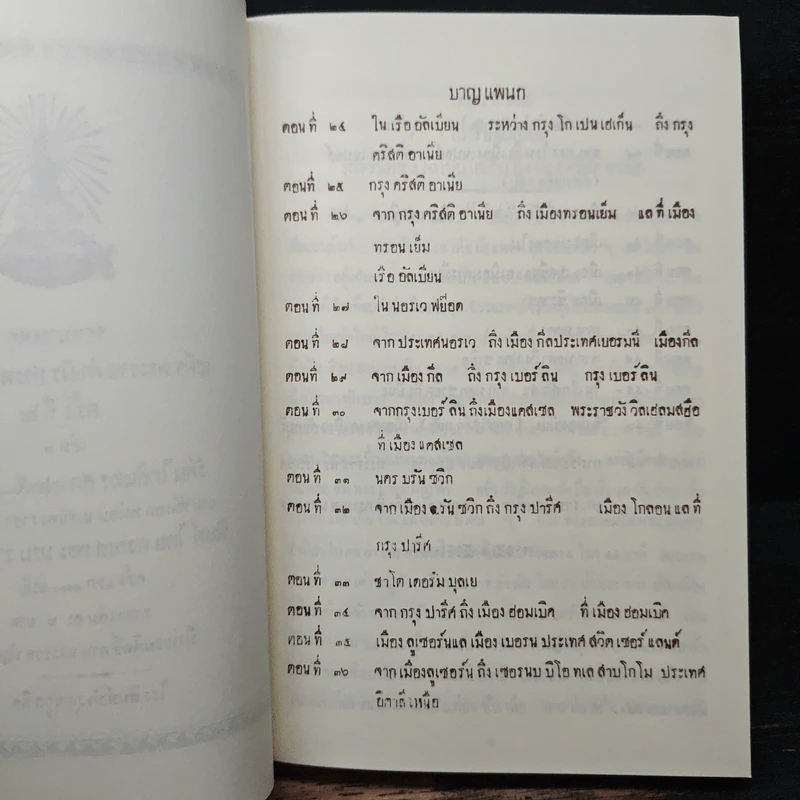 บาญ แพนก
ตอน ที่ ๒๔ ใน เรือ อัลเบียน ระหว่าง กรุง โก เปน เฮเก็น ถึง กรุง
คริสติ อาเนีย
ตอนที่ ๒๕ กรุง คริสติ อาเนีย
ตอน ที่ ๒๖ จาก กรุง คริสติ อาเนีย ถึง เมืองทรอนเย็ม แล ที่ เมือง
ทรอน เย็ม
เรือ อัลเบียน
ตอน ที่ ๒๗ ใน นอรเว ฟย็อด
ตอน ที่ ๒๘ จาก ประเทศนอรเว ถึง เมือง กีลประเทศเยอรมนี เมืองกีล
ตอน ที่ ๒๙ จาก เมือง กีล ถึง กรุง เบอร์ ลิน กรุง เบอร์ ลิน
ตอน ที่ ๓๐ จากกรุงเบอร์ ลิน ถึงเมืองแคสเซล พระราชวัง วิลเฮลมสฮือ
ที่ เมือง แคสเซล
ตอน ที่ ๓๑ นคร บรัน ซวิก
ตอน ที่ ๓๒ จาก เมือง บรัน ซวิก ถึง กรุง ปารีศ เมือง โกลอน แล ที่
กรุง ปารีศ
ตอน ที่ ๓๓ ซาโต เดอร์ม บุลเย
ตอน ที่ ๓๔ จาก กรุง ปารีศ ถึง เมือง ฮอมเบิค ที่ เมือง ฮอมเบิค
ตอน ที่ ๓๕ เมือง ลูเซอร์นแล เมือง เบอรน ประเทศ สวิต เซอร์ แลนด์
ตอน ที่ ๓๖ จาก เมืองลูเซอร์น ถึง เซอรนบ บิโอ ทเล สาบโกโม ประเทศ
อิตาลี เหนือ